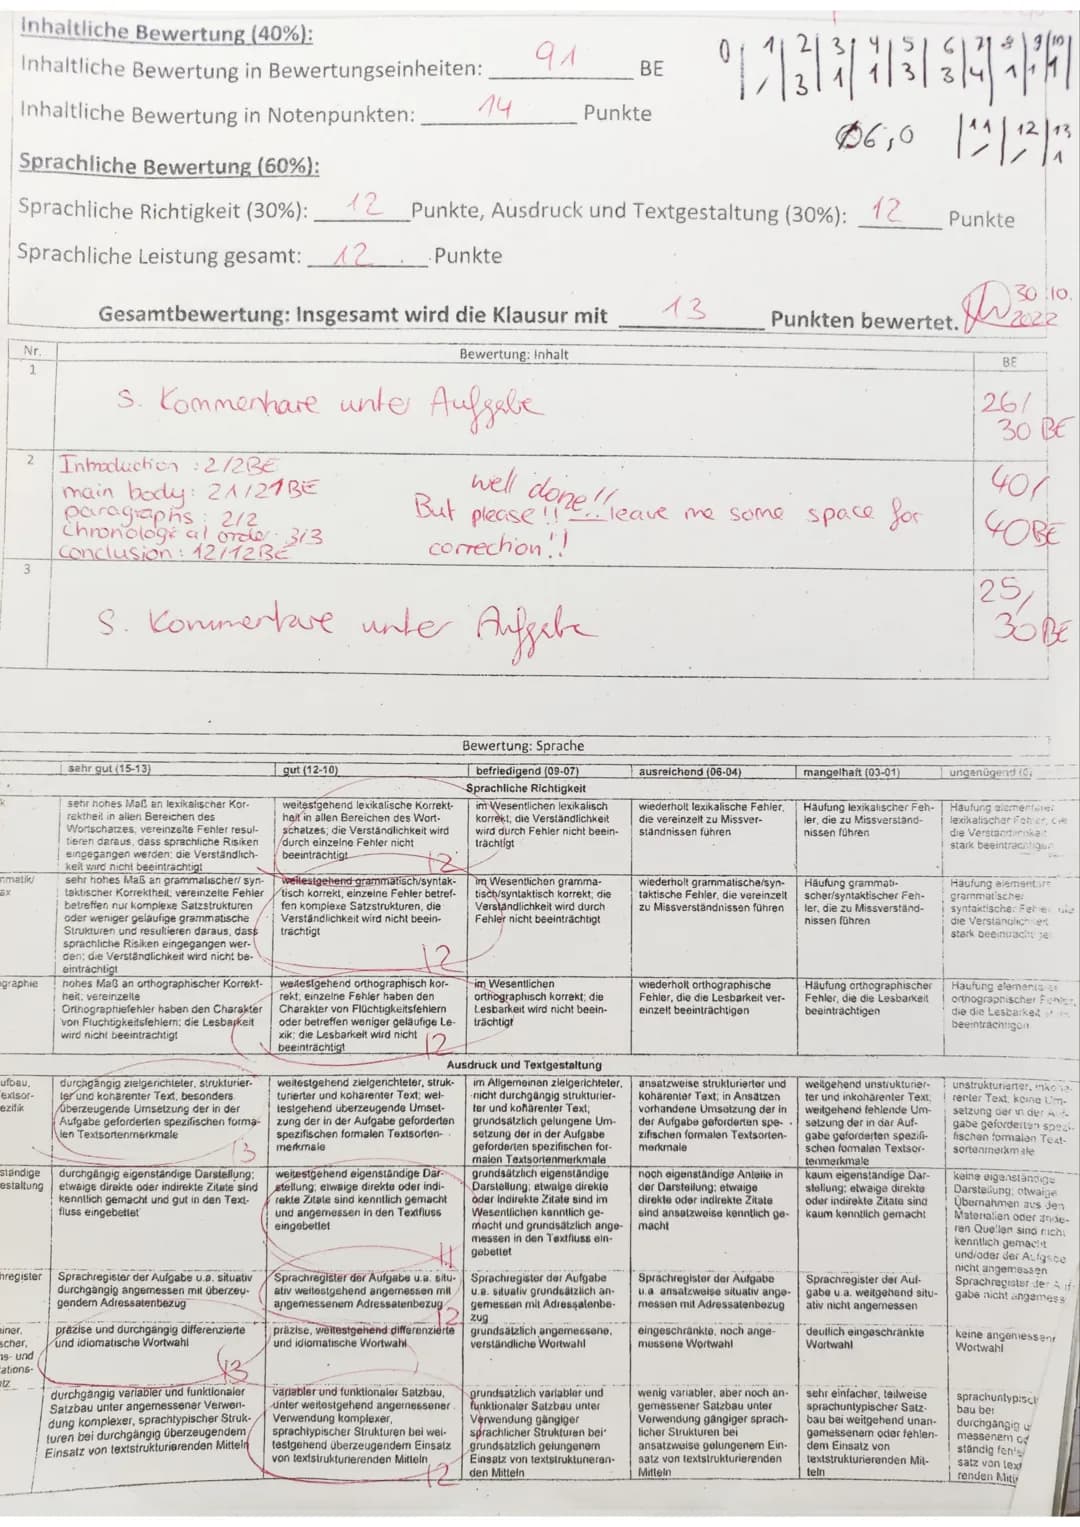 Inhaltliche Bewertung (40%):
Inhaltliche Bewertung in Bewertungseinheiten: 91 BE
Inhaltliche Bewertung in Notenpunkten: 14 Punkte
0 1 2 3 4 5 6 7 8 9 10
/ 3 1 1 3 3 4 1 1 1
Ø6,0
11 12 13
/ / 1
Sprachliche Bewertung (60%):
Sprachliche Richtigkeit (30%): 12 Punkte, Ausdruck und Textgestaltung (30%): 12 Punkte
Sprachliche Leistung gesamt: 12 Punkte
Gesamtbewertung: Insgesamt wird die Klausur mit 13 Punkten bewertet.
30.10.
2022
Nr. Bewertung: Inhalt BE
1 S. Kommentare unter Aufgabe 26/
30 BE
2 Introduction : 2/2BE
main body: 21/21BE
paragraphs : 2/2
Chronological order: 3/3
conclusion : 12/12BE
well done!!
But please!! leave me some space for
correction!!
40/
40BE
3 S. Kommentare unter Aufgabe 25/
30BE
Bewertung: Sprache
sehr gut (15-13) gut (12-10) befriedigend (09-07) ausreichend (06-04) mangelhaft (03-01) ungenügend
Sprachliche Richtigkeit
sehr hohes Maß an lexikalischer Kor-
rektheit in allen Bereichen des
Wortschatzes, vereinzelte Fehler resul-
tieren daraus, dass sprachliche Risiken
eingegangen werden; die Verständlich-
keit wird nicht beeinträchtigt
weitestgehend lexikalische Korrekt-
heit in allen Bereichen des Wort-
schatzes; die Verständlichkeit wird
durch einzelne Fehler nicht
beeinträchtigt
12
im Wesentlichen lexikalisch
korrekt; die Verständlichkeit
wird durch Fehler nicht beein-
trächtigt
wiederholt lexikalische Fehler,
die vereinzelt zu Missver-
ständnissen führen
Häufung lexikalischer Feh-
ler, die zu Missverständ-
nissen führen
Häufung elementarer
lexikalischer Fehler, die
die Verständlichkeit
stark beeinträchtigen
sehr hohes Maß an grammatischer/ syn-
taktischer Korrektheit; vereinzelte Fehler
betreffen nur komplexe Satzstrukturen
oder weniger geläufige grammatische
Strukturen und resultieren daraus, dass
sprachliche Risiken eingegangen wer-
den; die Verständlichkeit wird nicht be-
einträchtigt
weitestgehend grammatisch/syntak-
tisch korrekt, einzelne Fehler betref-
fen komplexe Satzstrukturen, die
Verständlichkeit wird nicht beein-
trächtigt
12
im Wesentlichen gramma-
tisch/syntaktisch korrekt, die
Verständlichkeit wird durch
Fehler nicht beeinträchtigt
wiederholt grammatische/syn-
taktische Fehler, die vereinzelt
zu Missverständnissen führen
Häufung grammati-
scher/syntaktischer Feh-
ler, die zu Missverständ-
nissen führen
Häufung elementarer
grammatischer
syntaktischer Fehler, die
die Verständlichkeit
stark beeinträchtigen
graphie
hohes Maß an orthographischer Korrekt-
heit; vereinzelte
Orthographiefehler haben den Charakter
von Flüchtigkeitsfehlern; die Lesbarkeit
wird nicht beeinträchtigt
weitestgehend orthographisch kor-
rekt; einzelne Fehler haben den
Charakter von Flüchtigkeitsfehlern
oder betreffen weniger geläufige Le-
xik; die Lesbarkeit wird nicht
beeinträchtigt
12
im Wesentlichen
orthographisch korrekt; die
Lesbarkeit wird nicht beein-
trächtigt
wiederholt orthographische
Fehler, die die Lesbarkeit ver-
einzelt beeinträchtigen
Häufung orthographischer
Fehler, die die Lesbarkeit
beeinträchtigen
Häufung elementarer
orthographischer Fehler,
die die Lesbarkeit
beeinträchtigen
Ausdruck und Textgestaltung
durchgängig zielgerichteter, strukturier-
ter und kohärenter Text, besonders
überzeugende Umsetzung der in der
Aufgabe geforderten spezifischen forma-
len Textsortenmerkmale
13
weitestgehend zielgerichteter, struk-
turierter und kohärenter Text; wei-
testgehend überzeugende Umset-
zung der in der Aufgabe geforderten
spezifischen formalen Textsorten-
merkmale
im Allgemeinen zielgerichteter,
nicht durchgängig strukturier-
ter und kohärenter Text,
grundsätzlich gelungene Um-
setzung der in der Aufgabe
geforderten spezifischen for-
malen Textsortenmerkmale
ansatzweise strukturierter und
kohärenter Text; in Ansätzen
vorhandene Umsetzung der in
der Aufgabe geforderten spe-
zifischen formalen Textsorten-
merkmale
weitgehend unstrukturier-
ter und inkohärenter Text;
weitgehend fehlende Um-
setzung der in der Auf-
gabe geforderten spezifi-
schen formalen Textsor-
tenmerkmale
unstrukturierter,
renter Text, keine Um-
setzung der in der Auf-
gabe geforderten spezi-
fischen formalen Text-
sortenmerkmale
ständige
estaltung
durchgängig eigenständige Darstellung;
etwaige direkte oder indirekte Zitate sind
kenntlich gemacht und gut in den Text-
fluss eingebettet
weitestgehend eigenständige Dar-
stellung; etwaige direkte oder indi-
rekte Zitate sind kenntlich gemacht
und angemessen in den Textfluss
eingebettet
11
grundsätzlich eigenständige
Darstellung; etwaige direkte
oder indirekte Zitate sind im
Wesentlichen kenntlich ge-
macht und grundsätzlich ange-
messen in den Textfluss ein-
gebettet
noch eigenständige Anteile in
der Darstellung; etwaige
direkte oder indirekte Zitate
sind ansatzweise kenntlich ge-
macht
kaum eigenständige Dar-
stellung; etwaige direkte
oder indirekte Zitate sind
kaum kenntlich gemacht
keine eigenständige
Darstellung; etwaige
Übernahmen aus den
Materialien oder ande-
ren Quellen sind nicht
kenntlich gemacht
und/oder der Aufgabe
nicht angemessen
hregister
Sprachregister der Aufgabe u.a. situativ
durchgängig angemessen mit überzeu-
gendem Adressatenbezug
Sprachregister der Aufgabe u.a. situ-
ativ weitestgehend angemessen mit
angemessenem Adressatenbezug
12
Sprachregister der Aufgabe
u.a. situativ grundsätzlich an-
gemessen mit Adressatenbe-
zug
Sprachregister der Aufgabe
u.a ansatzweise situativ ange-
messen mit Adressatenbezug
Sprachregister der Auf-
gabe u.a. weitgehend situ-
ativ nicht angemessen
Sprachregister der Auf-
gabe nicht angemess
präzise und durchgängig differenzierte
und idiomatische Wortwahl
13
präzise, weitestgehend differenzierte
und idiomatische Wortwahl
grundsätzlich angemessene,
verständliche Wortwahl
eingeschränkte, noch ange-
messene Wortwahl
deutlich eingeschränkte
Wortwahl
keine angemessene
Wortwahl
durchgängig variabler und funktionaler
Satzbau unter angemessener Verwen-
dung komplexer, sprachtypischer Struk-
turen bei durchgängig überzeugendem
Einsatz von textstrukturierenden Mitteln
variabler und funktionaler Satzbau,
unter weitestgehend angemessener
Verwendung komplexer,
sprachtypischer Strukturen bei wei-
testgehend überzeugendem Einsatz
von textstrukturierenden Mitteln
12
grundsätzlich variabler und
funktionaler Satzbau unter
Verwendung gängiger
sprachlicher Strukturen bei
grundsätzlich gelungenem
Einsatz von textstrukturieren-
den Mitteln
wenig variabler, aber noch an-
gemessener Satzbau unter
Verwendung gängiger sprach-
licher Strukturen bei
ansatzweise gelungenem Ein-
satz von textstrukturierenden
Mitteln
sehr einfacher, teilweise
sprachuntypischer Satz-
bau bei weitgehend unan-
gemessenem oder fehlen-
dem Einsatz von
textstrukturierenden Mit-
teln
sprachuntypisch
bau bei
durchgängig
messenem
ständig
satz von
renden